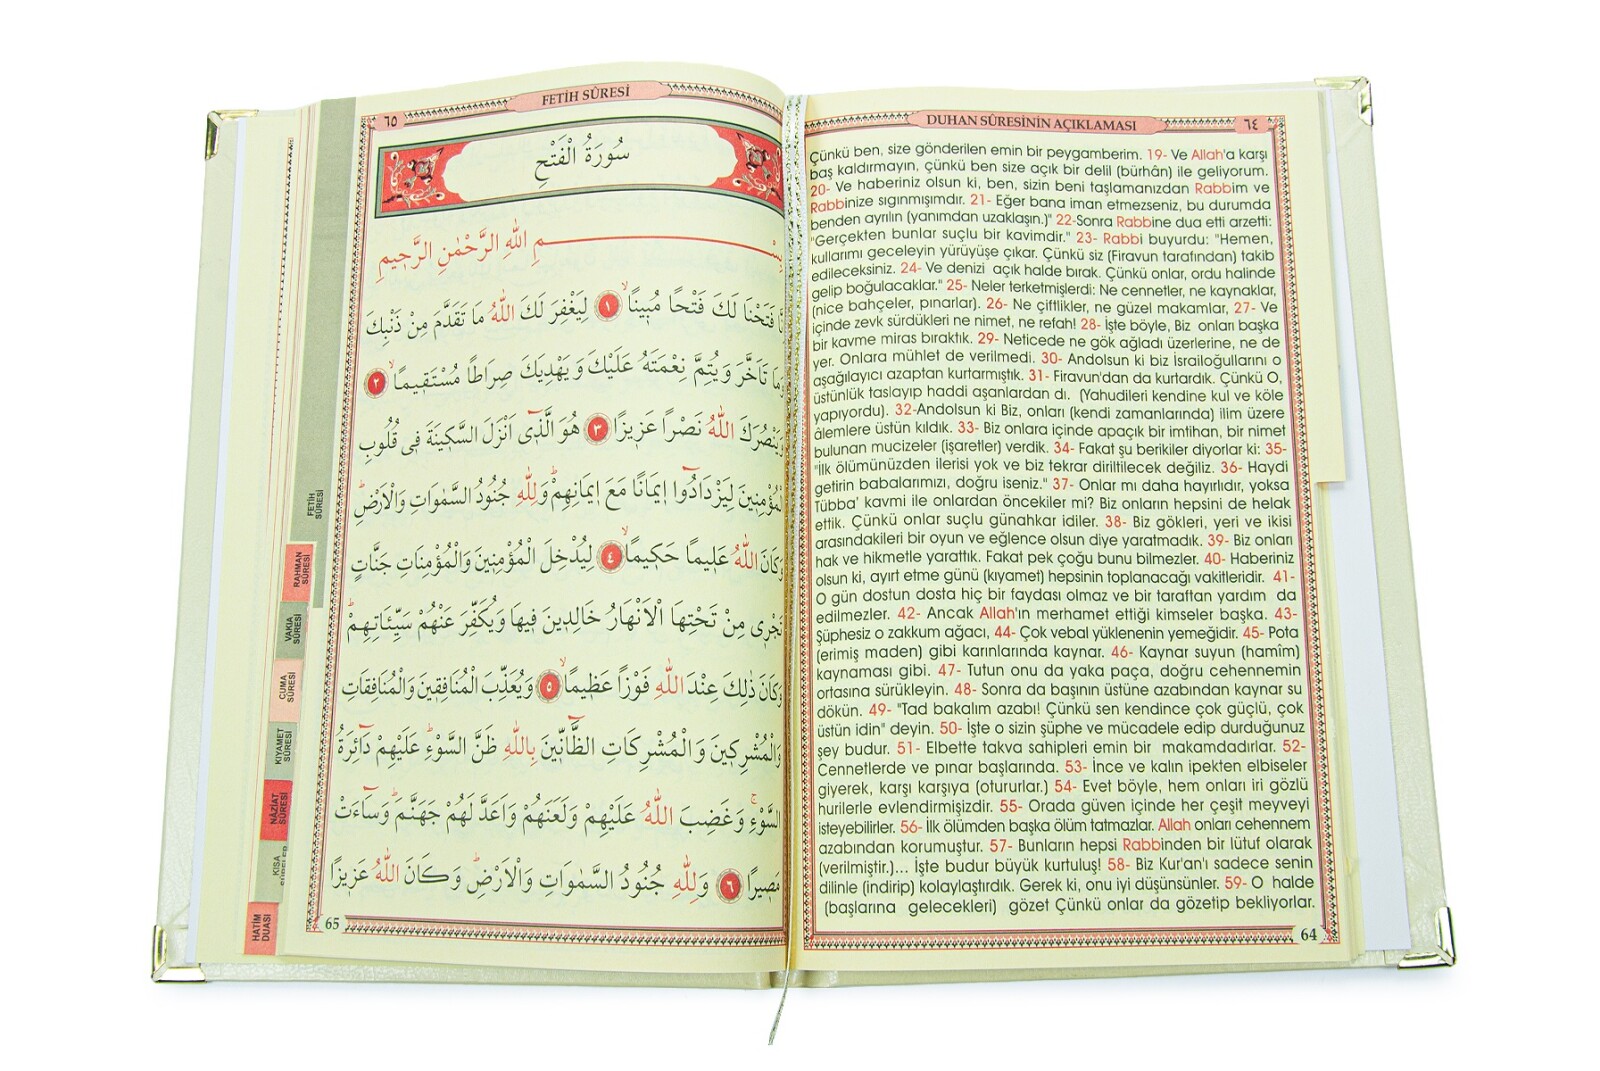 DUHAN SÛRESİNİN AÇIKLAMASI
٦٤
Çünkü ben, size gönderilen emin bir peygamberim. 19- Ve Allah'a karşı
baş kaldırmayın, çünkü ben size açık bir delil (bürhân) ile geliyorum.
20- Ve haberiniz olsun ki, ben, sizin beni taşlamanızdan Rabbim ve
Rabbinize sıgınmışımdır. 21- Eğer bana iman etmezseniz, bu durumda
benden ayrılın (yanımdan uzaklaşın.)" 22-Sonra Rabbine dua etti arzetti:
"Gerçekten bunlar suçlu bir kavimdir." 23- Rabbi buyurdu: "Hemen,
kullarımı geceleyin yürüyüşe çıkar. Çünkü siz (Firavun tarafından) takib
edileceksiniz. 24- Ve denizi açık halde bırak. Çünkü onlar, ordu halinde
gelip boğulacaklar." 25- Neler terketmişlerdi: Ne cennetler, ne kaynaklar,
(nice bahçeler, pınarlar). 26- Ne çiftlikler, ne güzel makamlar, 27- Ve
içinde zevk sürdükleri ne nimet, ne refah! 28- İşte böyle, Biz onları başka
bir kavme miras bıraktık. 29- Neticede ne gök ağladı üzerlerine, ne de
yer. Onlara mühlet de verilmedi. 30- Andolsun ki biz İsrailoğullarını o
aşağılayıcı azaptan kurtarmıştık. 31- Firavun'dan da kurtardık. Çünkü O,
üstünlük taslayıp haddi aşanlardan dı. (Yahudileri kendine kul ve köle
yapıyordu). 32-Andolsun ki Biz, onları (kendi zamanlarında) ilim üzere
âlemlere üstün kıldık. 33- Biz onlara içinde apaçık bir imtihan, bir nimet
bulunan mucizeler (işaretler) verdik. 34- Fakat şu berikiler diyorlar ki: 35-
"İlk ölümünüzden ilerisi yok ve biz tekrar diriltilecek değiliz. 36- Haydi
getirin babalarımızı, doğru iseniz." 37- Onlar mı daha hayırlıdır, yoksa
Tübba' kavmi ile onlardan öncekiler mi? Biz onların hepsini de helak
ettik. Çünkü onlar suçlu günahkar idiler. 38- Biz gökleri, yeri ve ikisi
arasındakileri bir oyun ve eğlence olsun diye yaratmadık. 39- Biz onları
hak ve hikmetle yarattık. Fakat pek çoğu bunu bilmezler. 40- Haberiniz
olsun ki, ayırt etme günü (kıyamet) hepsinin toplanacağı vakitleridir. 41-
O gün dostun dosta hiç bir faydası olmaz ve bir taraftan yardım da
edilmezler. 42- Ancak Allah'ın merhamet ettiği kimseler başka. 43-
Şüphesiz o zakkum ağacı, 44- Çok vebal yüklenenin yemeğidir. 45- Pota
(erimiş maden) gibi karınlarında kaynar. 46- Kaynar suyun (hamîm)
kaynaması gibi. 47- Tutun onu da yaka paça, doğru cehennemin
ortasına sürükleyin. 48- Sonra da başının üstüne azabından kaynar su
dökün. 49- "Tad bakalım azabı! Çünkü sen kendince çok güçlü, çok
üstün idin" deyin. 50- İşte o sizin şüphe ve mücadele edip durduğunuz
şey budur. 51- Elbette takva sahipleri emin bir makamdadırlar. 52-
Cennetlerde ve pınar başlarında. 53- İnce ve kalın ipekten elbiseler
giyerek, karşı karşıya (otururlar.) 54- Evet böyle, hem onları iri gözlü
hurilerle evlendirmişizdir. 55- Orada güven içinde her çeşit meyveyi
isteyebilirler. 56- İlk ölümden başka ölüm tatmazlar. Allah onları cehennem
azabından korumuştur. 57- Bunların hepsi Rabbinden bir lütuf olarak
(verilmiştir.)... İşte budur büyük kurtuluş! 58- Biz Kur'an'ı sadece senin
dilinle (indirip) kolaylaştırdık. Gerek ki, onu iyi düşünsünler. 59- O halde
(başlarına gelecekleri) gözet Çünkü onlar da gözetip bekliyorlar.
64
٦٥
FETİH SÛRESİ
سُورَةُ الْفَتْحِ
بِسْمِ اللّٰهِ الرَّحْمٰنِ الرَّح۪يمِ
اِنَّا فَتَحْنَا لَكَ فَتْحًا مُب۪ينًاۙ ١ لِيَغْفِرَ لَكَ اللّٰهُ مَا تَقَدَّمَ مِنْ ذَنْبِكَ
وَمَا تَاَخَّرَ وَيُتِمَّ نِعْمَتَهُ عَلَيْكَ وَيَهْدِيَكَ صِرَاطًا مُسْتَق۪يمًاۙ ٢
وَيَنْصُرَكَ اللّٰهُ نَصْرًا عَز۪يزًا ٣ هُوَ الَّذ۪ٓي اَنْزَلَ السَّك۪ينَةَ ف۪ي قُلُوبِ
الْمُؤْمِن۪ينَ لِيَزْدَادُٓوا ا۪يمَانًا مَعَ ا۪يمَانِهِمْۜ وَلِلّٰهِ جُنُودُ السَّمٰوَاتِ وَالْاَرْضِۜ
وَكَانَ اللّٰهُ عَل۪يمًا حَك۪يمًاۙ ٤ لِيُدْخِلَ الْمُؤْمِن۪ينَ وَالْمُؤْمِنَاتِ جَنَّاتٍ
تَجْر۪ي مِنْ تَحْتِهَا الْاَنْهَارُ خَالِد۪ينَ ف۪يهَا وَيُكَفِّرَ عَنْهُمْ سَيِّـَٔاتِهِمْۜ
وَكَانَ ذٰلِكَ عِنْدَ اللّٰهِ فَوْزًا عَظ۪يمًاۙ ٥ وَيُعَذِّبَ الْمُنَافِق۪ينَ وَالْمُنَافِقَاتِ
وَالْمُشْرِك۪ينَ وَالْمُشْرِكَاتِ الظَّٓانّ۪ينَ بِاللّٰهِ ظَنَّ السَّوْءِۜ عَلَيْهِمْ دَٓائِرَةُ
السَّوْءِۚ وَغَضِبَ اللّٰهُ عَلَيْهِمْ وَلَعَنَهُمْ وَاَعَدَّ لَهُمْ جَهَنَّمَۜ وَسَٓاءَتْ
مَص۪يرًا ٦ وَلِلّٰهِ جُنُودُ السَّمٰوَاتِ وَالْاَرْضِۜ وَكَانَ اللّٰهُ عَز۪يزًا
65
FETİH
SÛRESİ
RAHMAN
SÛRESİ
VAKIA
SÛRESİ
CUMA
SÛRESİ
KIYAMET
SÛRESİ
NÂZİAT
SÛRESİ
KISA
HATİM
DUASI